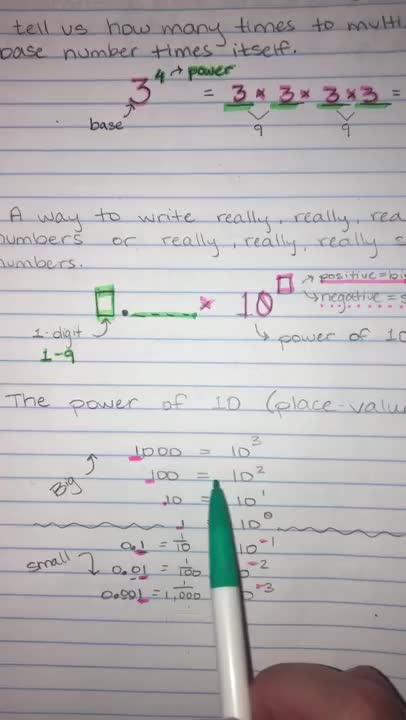 tell us how many times to multi
base number times itself.
3⁴ → power = 3 × 3 × 3 × 3 =
base 9 9
A way to write really, really, rea
numbers or really, really, really s
numbers.
□.____ × 10□ positive=bi
negative=s
1-digit power of 10
1-9
The power of 10 (place-valu
1000 = 10³
Big 100 = 10²
10 = 10¹
1 10⁰
small 0.1 = 1/10 10⁻¹
0.01 = 1/100 ⁻²
0.001 = 1/1,000 ⁻³